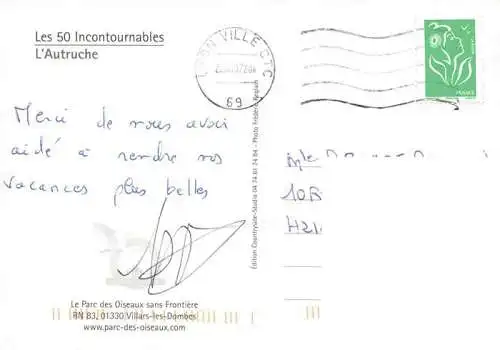 Les 50 Incontournables
L'Autruche
LYON VILLE CTC
69
FRANCE
Merci de nous avoir
aidé à rendre nos
vacances plus belles
Edition Countryside-Studio 04 74 61 24 94 - Photo Frédéric
10R
Le Parc des Oiseaux sans Frontière
RN 83, 01330 Villars-les-Dombes
www.parc-des-oiseaux.com